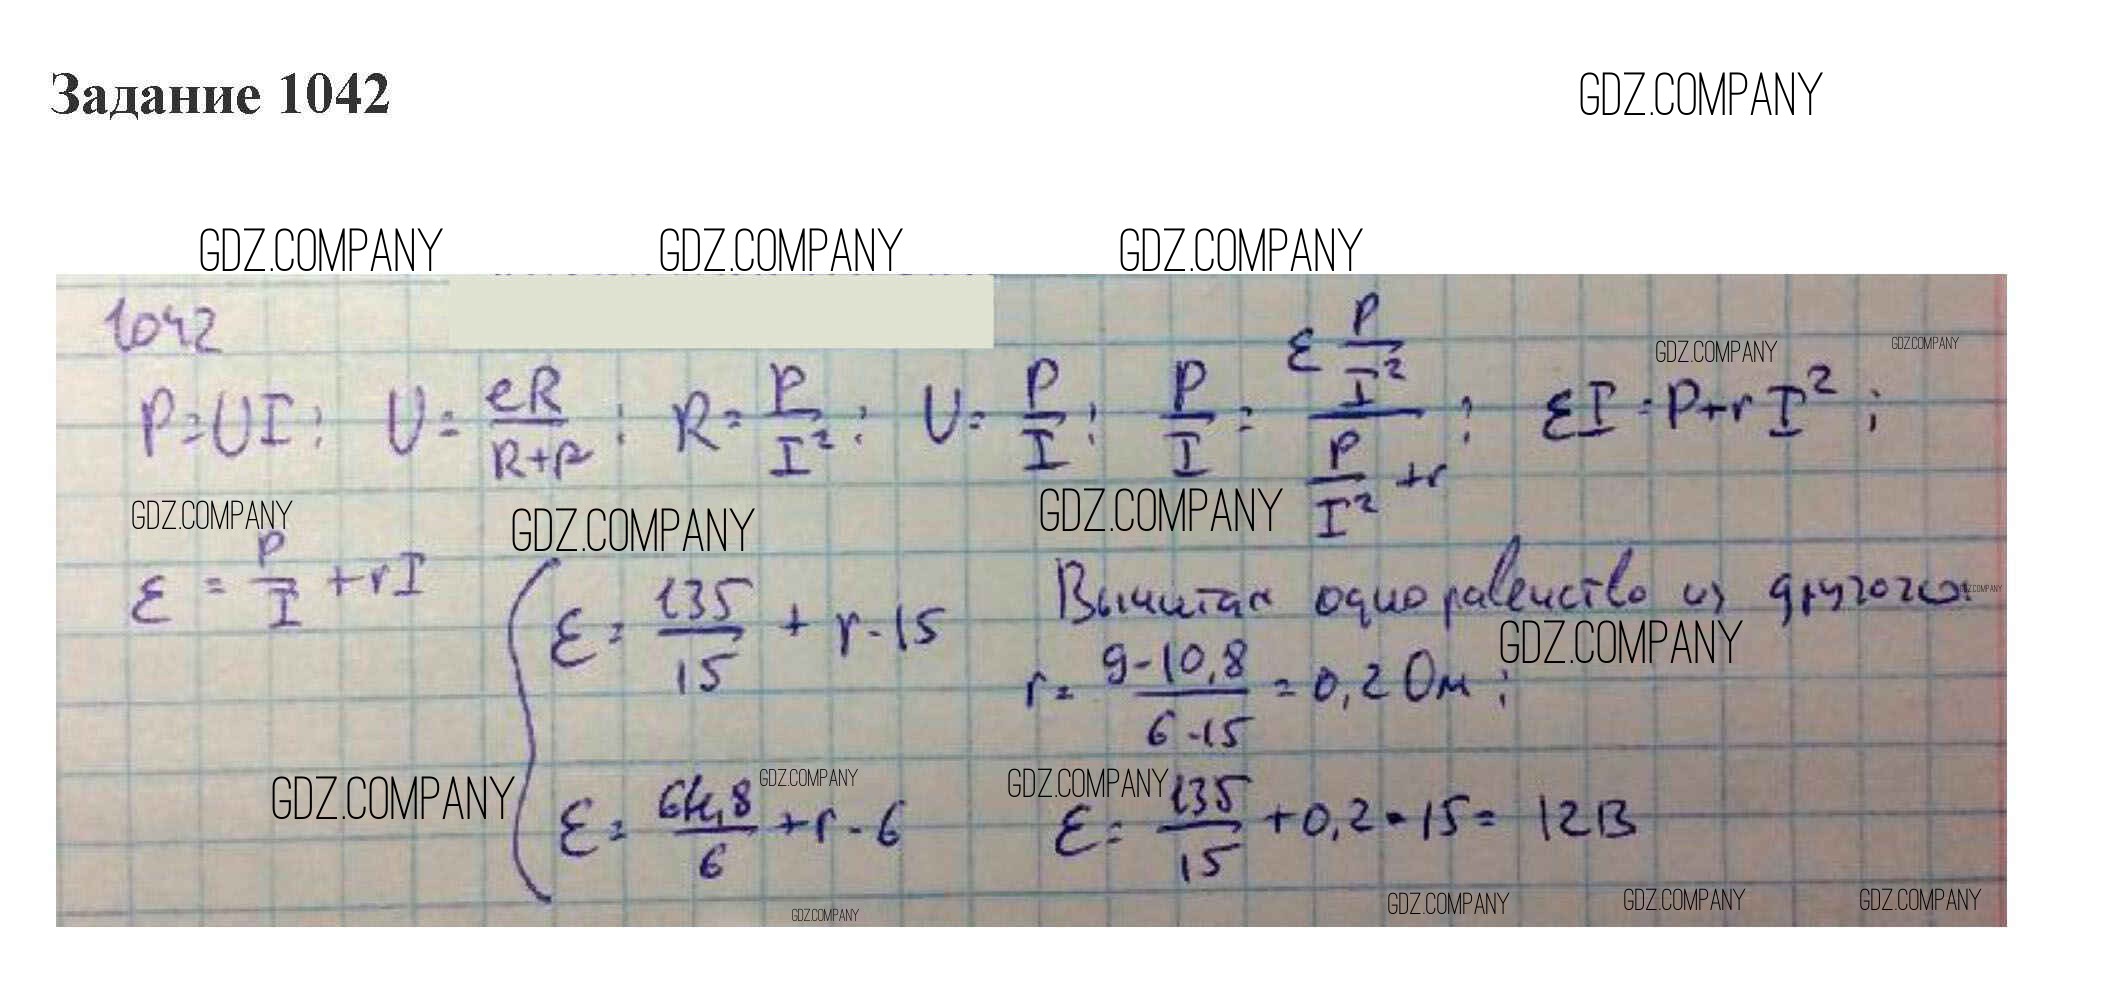 Задание 1042
GDZ.COMPANY
GDZ.COMPANY GDZ.COMPANY GDZ.COMPANY
1042
GDZ.COMPANY GDZ.COMPANY
P=UI; U= eR/(R+r); R= P/I²; U= P/I; P/I = (ε P/I²)/(P/I² +r); εI=P+rI²;
GDZ.COMPANY GDZ.COMPANY GDZ.COMPANY
ε = P/I +rI
ε= 135/15 + r·15
Вычитая одно равенство из другого:
GDZ.COMPANY
GDZ.COMPANY
r= (9-10,8)/(6-15) =0,2 Ом;
GDZ.COMPANY GDZ.COMPANY GDZ.COMPANY
ε= 64,8/6 +r·6
ε= 135/15 +0,2·15= 12В
GDZ.COMPANY GDZ.COMPANY GDZ.COMPANY GDZ.COMPANY